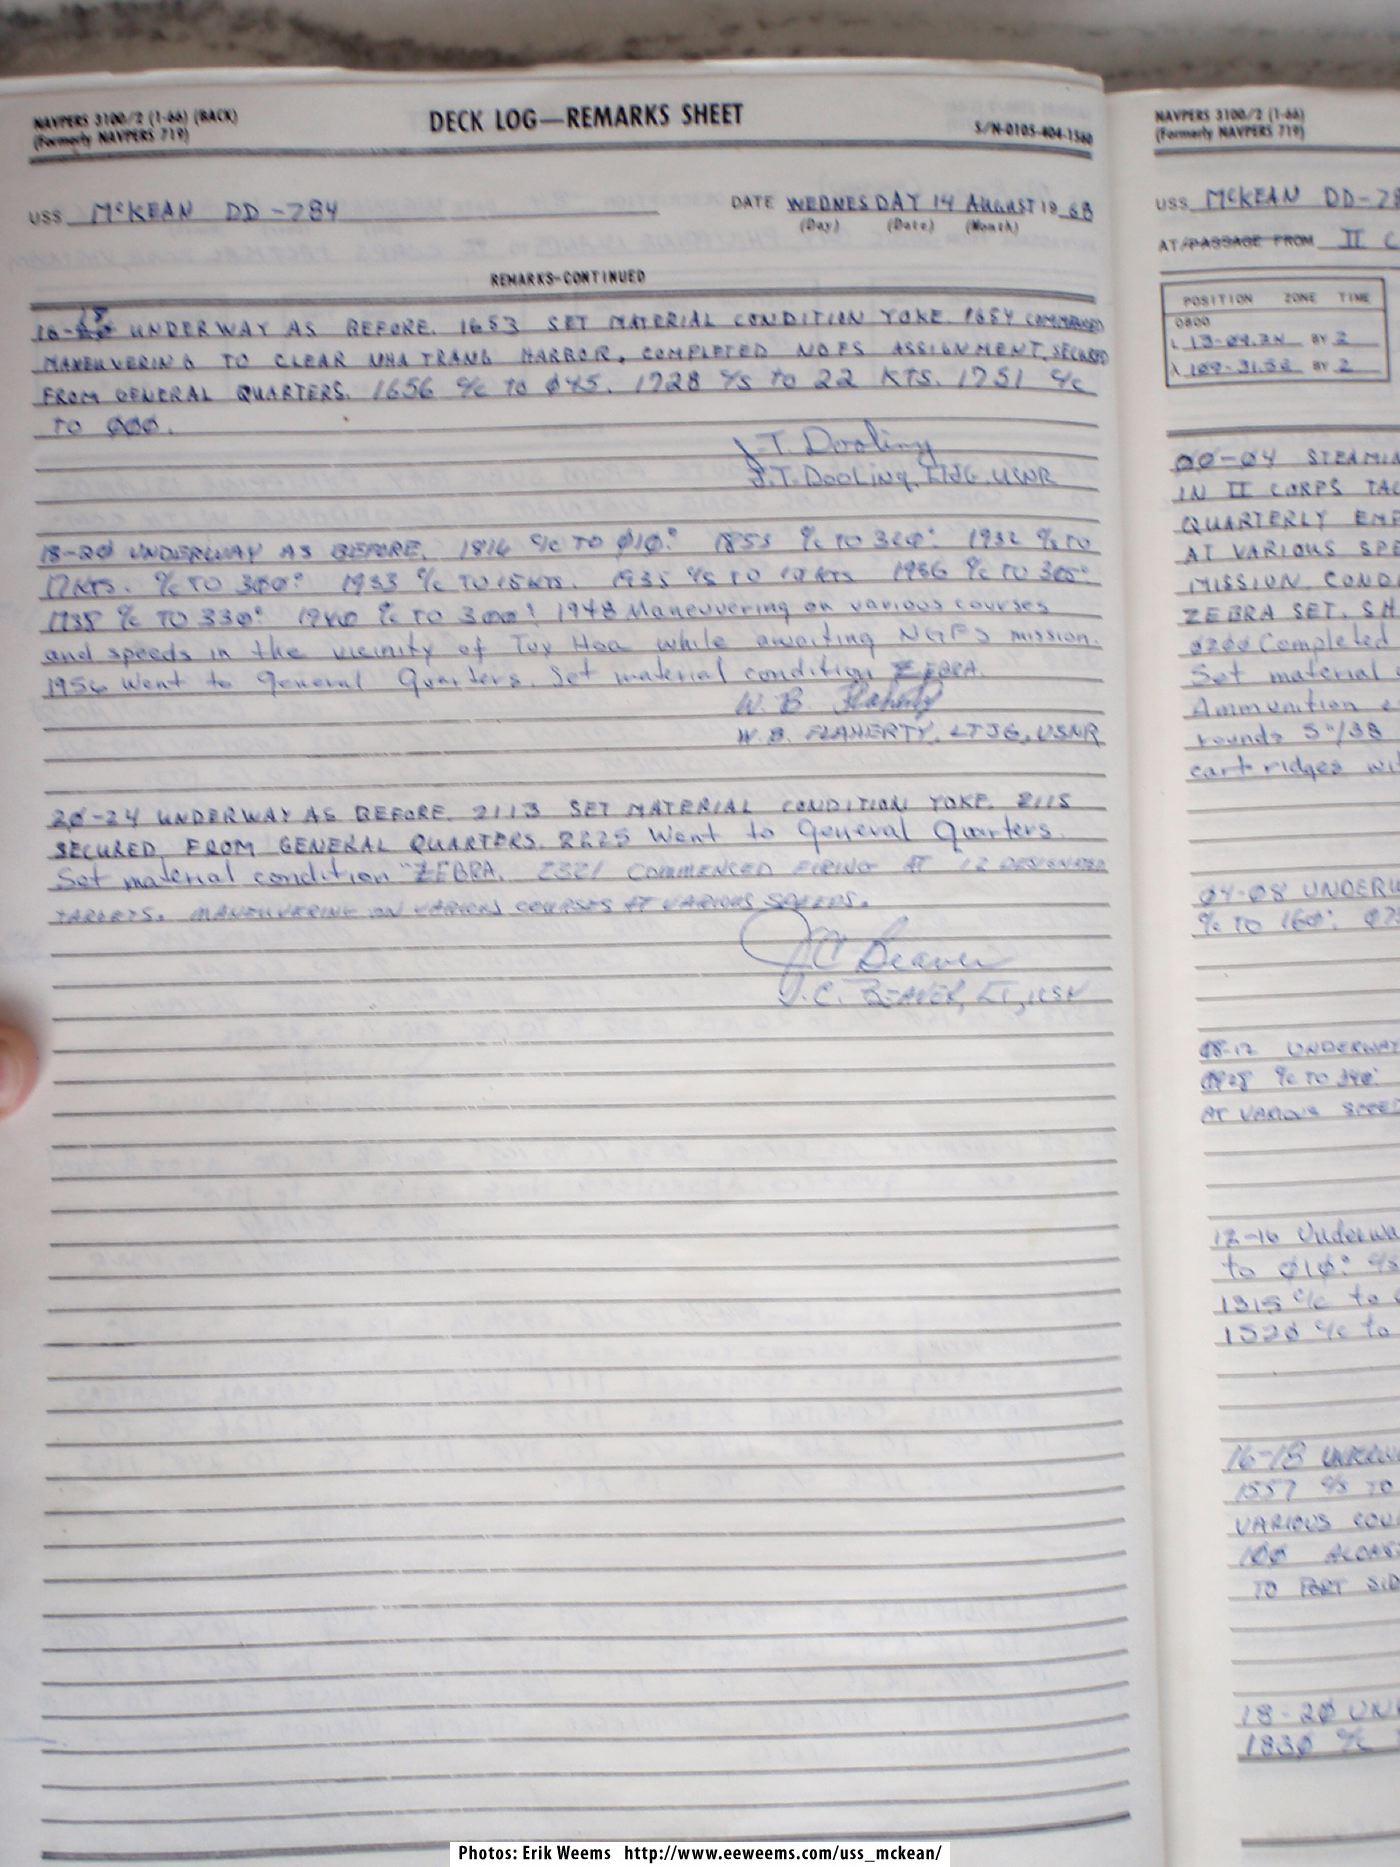 NAVPERS 3100/2 (1-66) (BACK)
(Formerly NAVPERS 719)
DECK LOG—REMARKS SHEET
S/N-0105-404-1560
USS McKEAN DD-784
DATE WEDNESDAY 14 AUGUST 19 68
(Day) (Date) (Month)
REMARKS-CONTINUED
18
16-20 UNDERWAY AS BEFORE. 1653 SET MATERIAL CONDITION YOKE. 1654 COMMENCED
MANEUVERING TO CLEAR NHA TRANG HARBOR, COMPLETED NGFS ASSIGNMENT, SECURED
FROM GENERAL QUARTERS. 1656 c/c to Ø45. 1728 c/s to 22 KTS. 1751 c/c
TO ØØØ.
J.T. Dooling
J.T. Dooling, LTJG, USNR
18-2Ø UNDERWAY AS BEFORE. 1816 c/c TO Ø1Ø° 1853 c/c TO 32Ø° 1932 c/s TO
17KTS. c/c TO 3ØØ° 1933 c/c TO 15KTS. 1935 c/s TO 10 KTS 1936 c/c TO 305°
1938 c/c TO 33Ø° 194Ø c/c TO 3ØØ° 1948 Maneuvering on various courses
and speeds in the vicinity of Tuy Hoa while awaiting NGFS mission.
1956 Went to General Quarters. Set material condition ZEBRA.
W. B. Flaherty
W. B. FLAHERTY, LTJG, USNR
2Ø-24 UNDERWAY AS BEFORE. 2113 SET MATERIAL CONDITION YOKE. 2115
SECURED FROM GENERAL QUARTERS. 2225 Went to General Quarters.
Set material condition ZEBRA. 2321 COMMENCED FIRING AT 12 DESIGNATED
TARGETS. MANEUVERING ON VARIOUS COURSES AT VARIOUS SPEEDS.
J C Beaver
J. C. BEAVER, LT, USN
NAVPERS 3100/2 (1-66)
(Formerly NAVPERS 719)
USS McKEAN DD-78
AT/PASSAGE FROM II C
POSITION ZONE TIME
0800
L BY 2
λ BY 2
ØØ-Ø4 STEAMIN
IN II CORPS TAC
QUARTERLY EMP
AT VARIOUS SPE
MISSION. COND
ZEBRA SET. SH
Completed
Set material
Ammunition
rounds 5"/38
cartridges wi
Ø4-Ø8 UNDERW
c/c TO 16Ø°
Ø8-12 UNDERWAY
c/c TO 34Ø°
AT VARIOUS SPEED
12-16 Underwa
to Ø1Ø° c/s
1315 c/c to
152Ø c/c to
16-18 UNDERW
1557 c/s TO
VARIOUS COU
1ØØ ALONGS
TO PORT SID
18-2Ø UN
183Ø c/c
Photos: Erik Weems http://www.eeweems.com/uss_mckean/